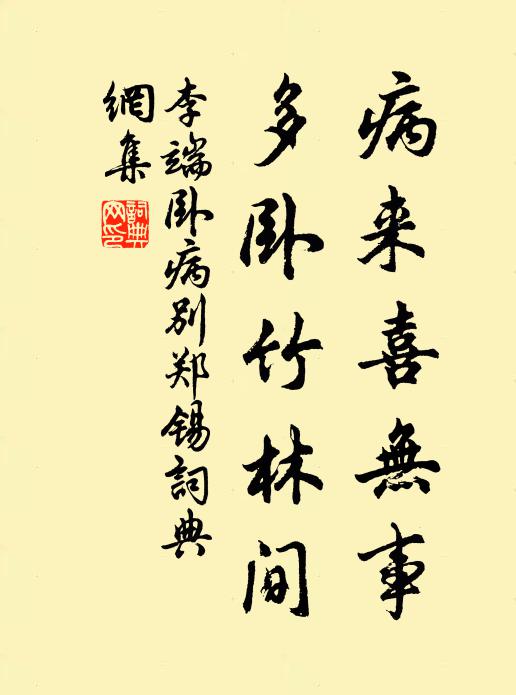 病来喜無事
多卧竹林间
李端卧病别郑锡詞典
網集
詞典
网印